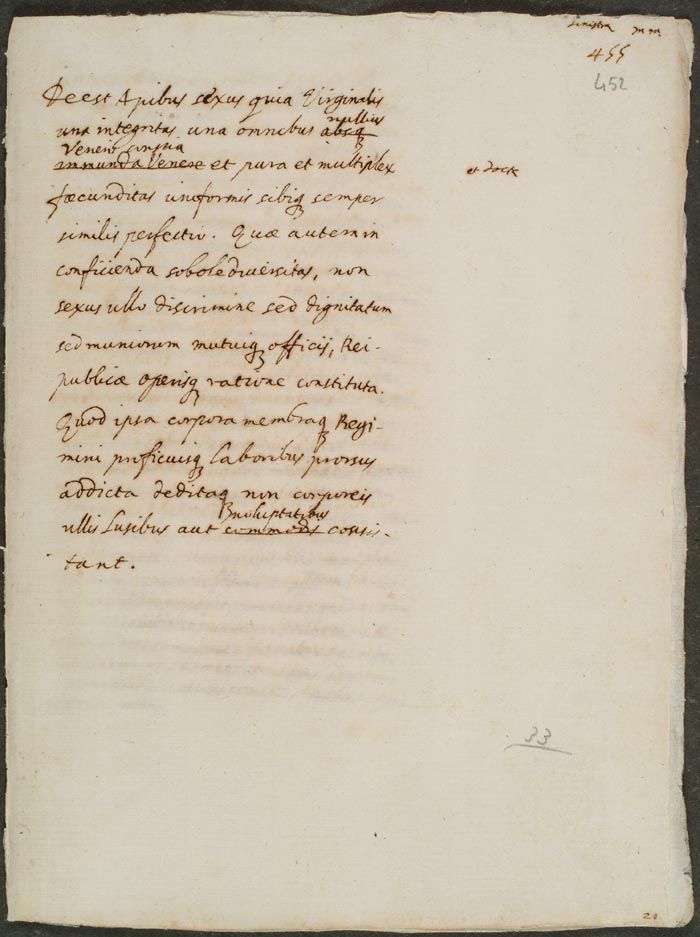 sinistra m m
455
452
Deest Apibus sexus quia Virginalis
nullius
una integritas una omnibus absq
Veneris conscia
immunda Venere et pura et multiplex
et doct
fæcunditas uniformis sibiq semper
similis perfectio. Quæ autem in
conficienda sobole diversitas, non
sexus ullo discrimine sed dignitatum
sed muniorum mutuiq officij, Rei-
publicæ operisq ratione constituta.
Quod ipsa corpora membraq Regi-
mini proficuisq laboribus prorsus
addicta deditaq non corporeis
voluptatibus
ullis lusibus aut commodis consis-
tant.
33
20